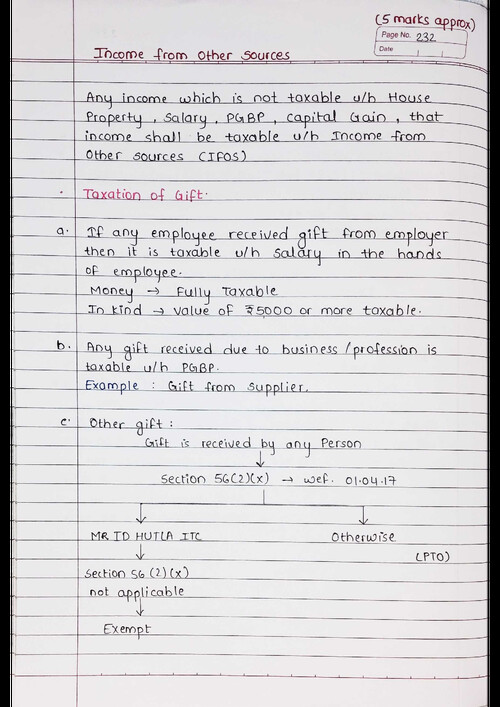 (5 marks approx)
Page No. 232
Date
Income from Other Sources
Any income which is not taxable u/h House
Property, Salary, PGBP, Capital Gain, that
income shall be taxable u/h Income from
Other Sources (IFOS)
· Taxation of Gift·
a. If any employee received gift from employer
then it is taxable u/h Salary in the hands
of employee.
Money → Fully Taxable
In kind → Value of ₹5,000 or more taxable.
b. Any gift received due to business/profession is
taxable u/h PGBP.
Example : Gift from Supplier.
c. Other gift :
Gift is received by any Person
↓
Section 56(2)(x) → wef. 01.04.17
↓ ↓
MR ID HUTLA ITC Otherwise
↓ (PTO)
Section 56 (2)(x)
not applicable
↓
Exempt